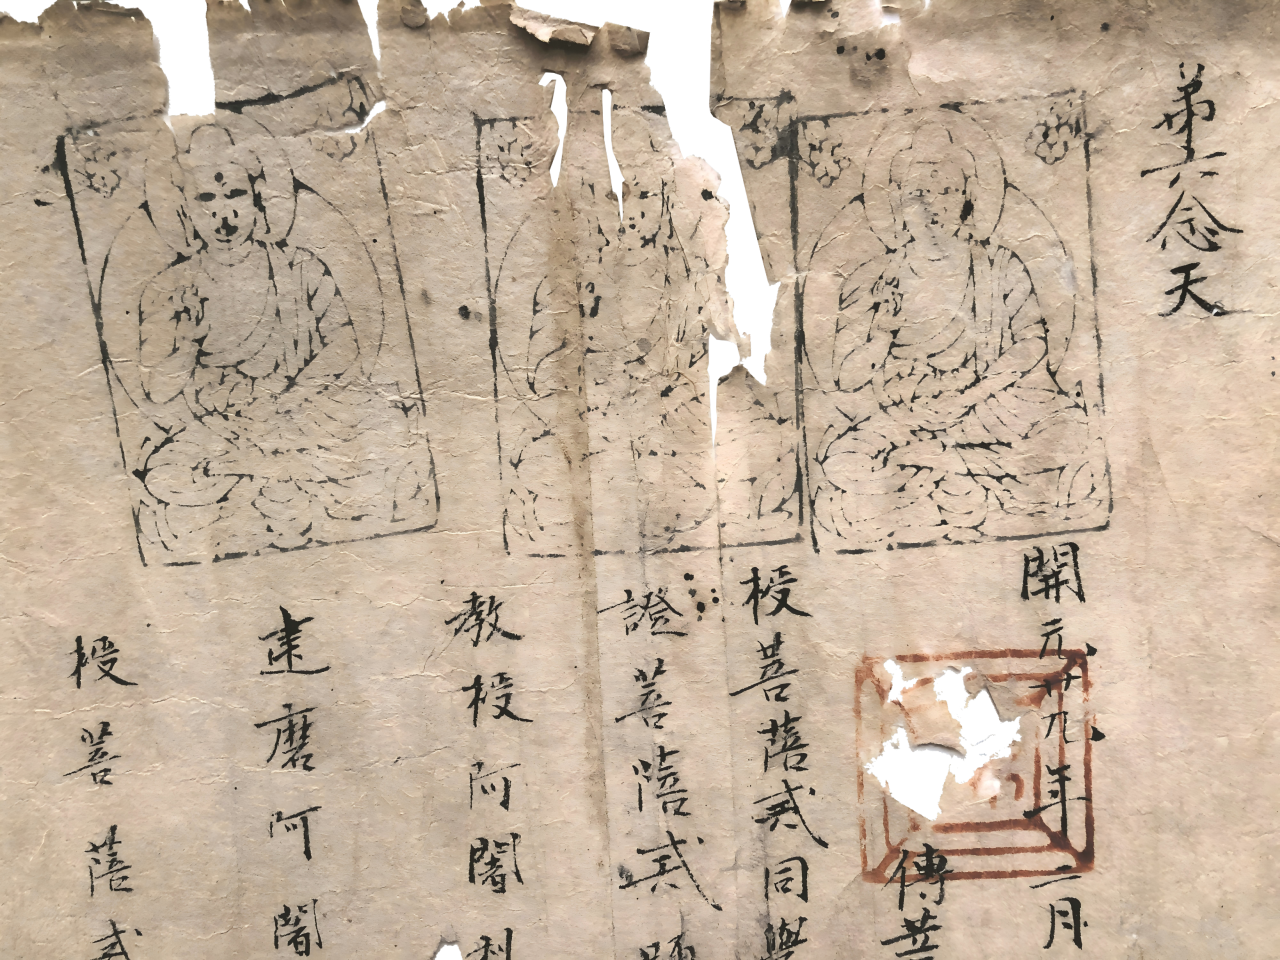 弟六念天
開元廿九年二月
傳菩
授菩薩戒同學
證菩薩戒師
教授阿闍利
建磨阿闍
授菩薩戒